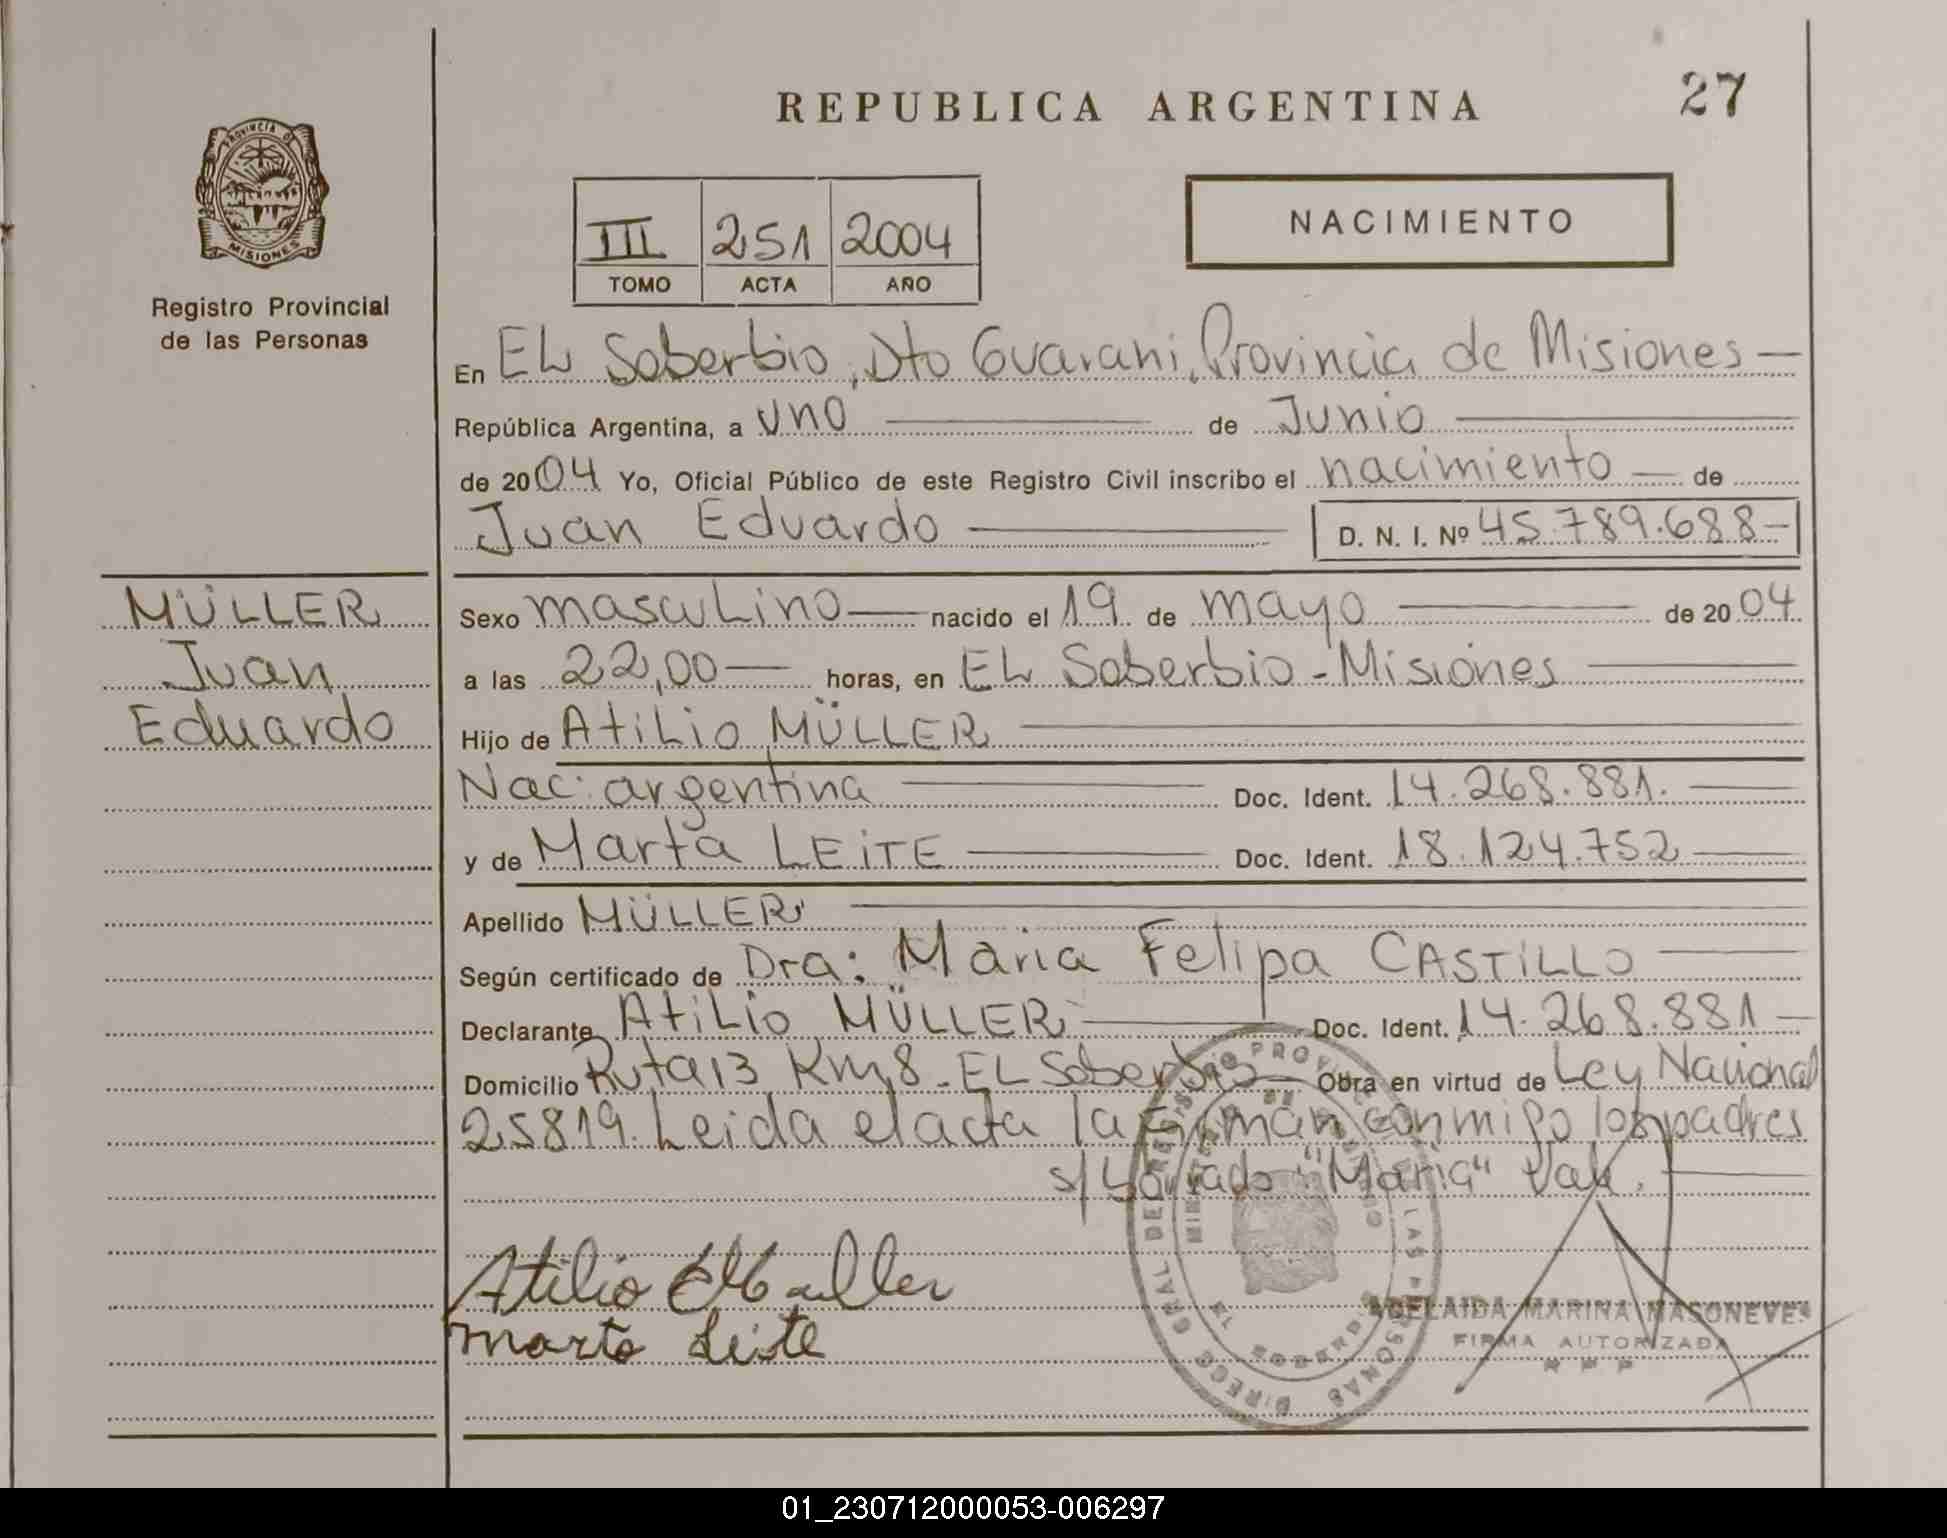 REPUBLICA ARGENTINA
27
PROVINCIA DE
MISIONES
Registro Provincial
de las Personas
III 251 2004
TOMO ACTA AÑO
NACIMIENTO
En EL Soberbio, Dto Guarani, Provincia de Misiones
República Argentina, a uno de Junio
de 2004 Yo, Oficial Público de este Registro Civil inscribo el nacimiento de
Juan Eduardo D. N. I. Nº 45.789.688
MÜLLER
Juan
Eduardo
Sexo masculino nacido el 19 de mayo de 2004
a las 22,00 horas, en EL Soberbio - Misiones
Hijo de Atilio MÜLLER
Nac: argentina Doc. Ident. 14.268.881.
y de Marta LEITE Doc. Ident. 18.124.752
Apellido MÜLLER
Según certificado de Dra: Maria Felipa CASTILLO
Declarante Atilio MÜLLER Doc. Ident. 14.268.881
Domicilio Ruta 13 Km 8 - EL Soberbio Obra en virtud de Ley Nacional
25819. Leida el acta la firman conmigo los padres
s/ borrado "Maria" Vale.
Atilio Muller
Marta Leite
ADELAIDA MARINA
FIRMA AUTORIZADA
01_230712000053-006297